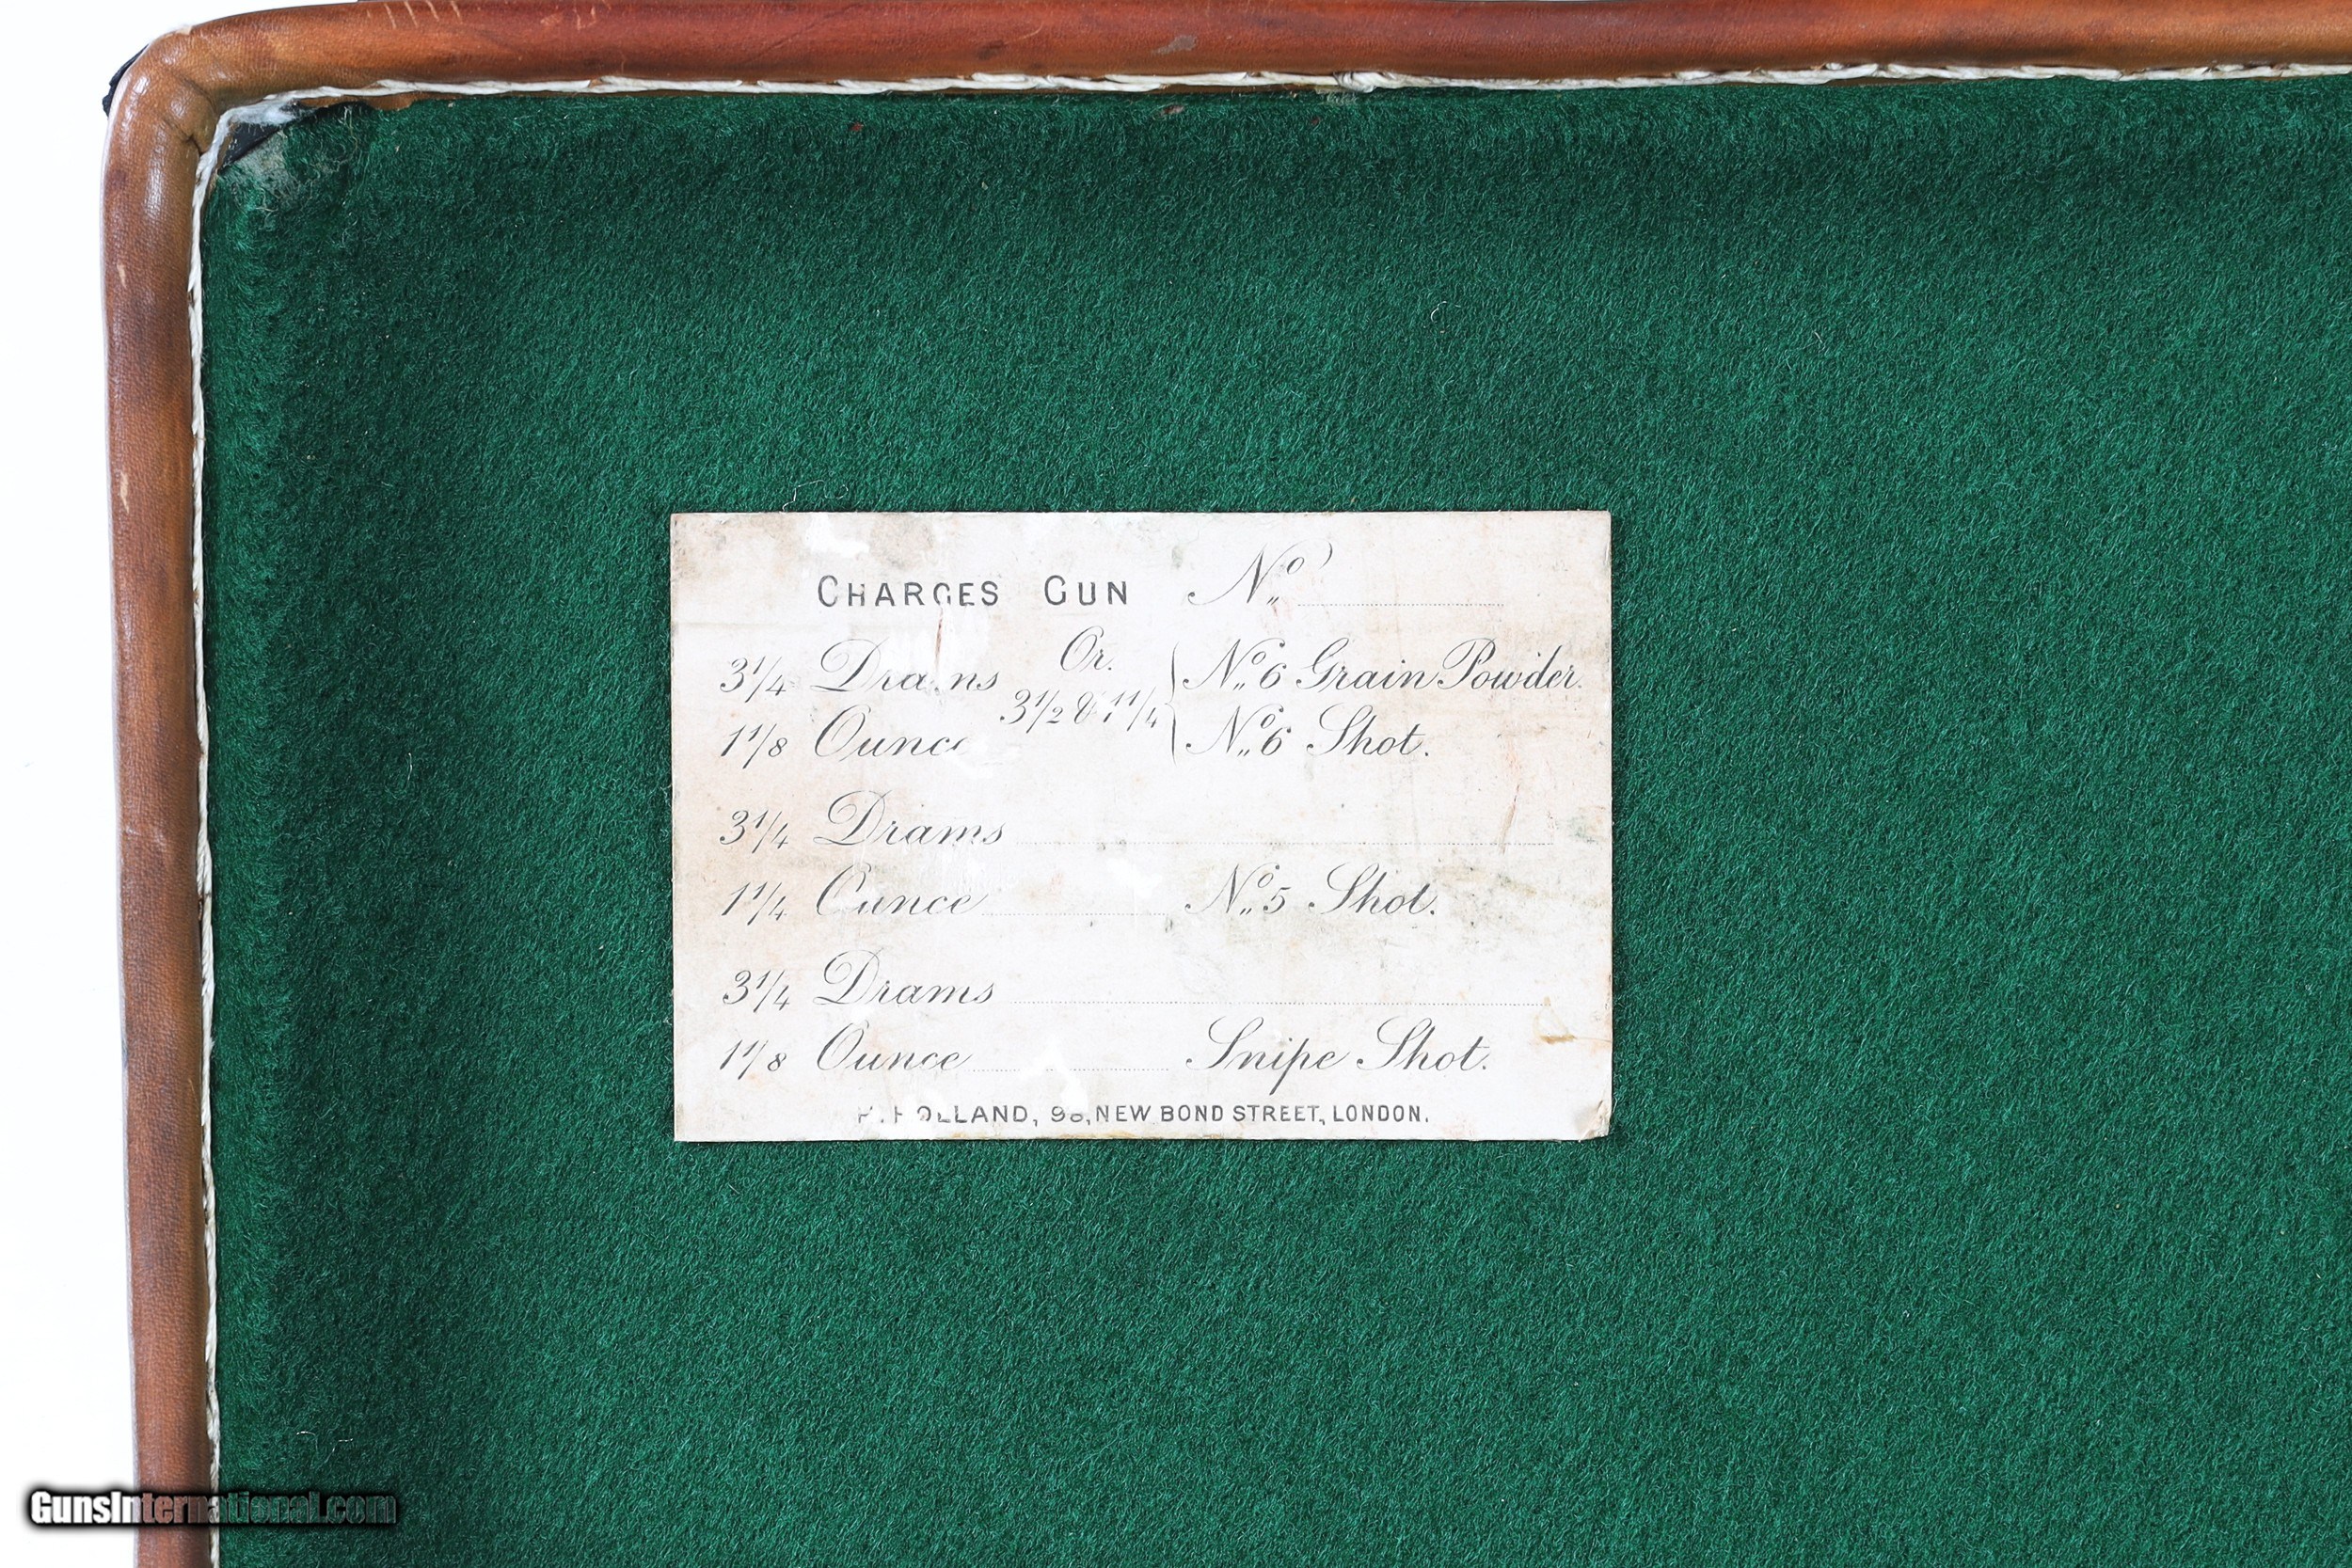 CHARGES GUN No.
3 1/4 Drams Or. No. 6 Grain Powder.
3 1/2 & 1 1/4
1 1/8 Ounce No. 6 Shot.
3 1/4 Drams
1 1/4 Ounce No. 5 Shot.
3 1/4 Drams
1 1/8 Ounce Snipe Shot.
HOLLAND, 98, NEW BOND STREET, LONDON.
GunsInternational.com